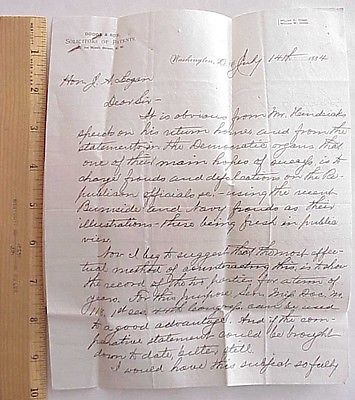 DODGE & SON,
SOLICITORS OF PATENTS,
Washington, D.C. July 14th 1884
Hon J. A. Logan
Dear Sir -
It is obvious from Mr. Hendricks
speech on his return home and from the
statements in the Democratic organs that
one of their main hopes of success is to
charge frauds and defalcations on the Re-
publican officials - using the recent
Burnside and Navy frauds as their
illustrations - these being fresh in public
view.
Now I beg to suggest that the most effec-
tual method of counteracting this, is to show
the record of the two parties for a term of
years. For this purpose Sen. Mis. Doc. No.
1st ses. Congress can be used
to a good advantage. And if the com-
parative statement could be brought
down to date, better still.
I would have this subject so fully